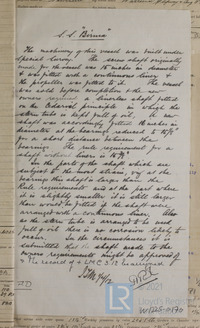 S.S. "Bernia"
The machinery of this vessel was built under
Special Survey. The screw shaft originally
for the vessel was 15 inches in diameter
& was fitted with a continuous liner &
the propeller was fitted to it. The vessel
was sold before completion & the new
owners required a linerless shaft fitted
on the Cedervall principle in which the
stern tube is kept full of oil. A new
shaft was accordingly fitted 16 inches in
diameter at the bearings reduced to 15 1/8"
for a short distance between the
bearings. The rule requirement for a
shaft without liners is
In the parts of the shaft which are
subject to the most strain, viz at the
bearings this shaft is larger than the
Rule requirement and at the part where
it is slightly smaller it is still larger
than would be fitted if the shaft were
arranged with a continuous liner. Also
as the stern tube is arranged to be kept
full of oil there is no corrosion likely to
occur. In the circumstances it is
submitted the shaft made to the
owners requirements might be approved of
& the record of + LMC 3.12 be assigned
© 2021
Lloyd's Register
W1125-0170